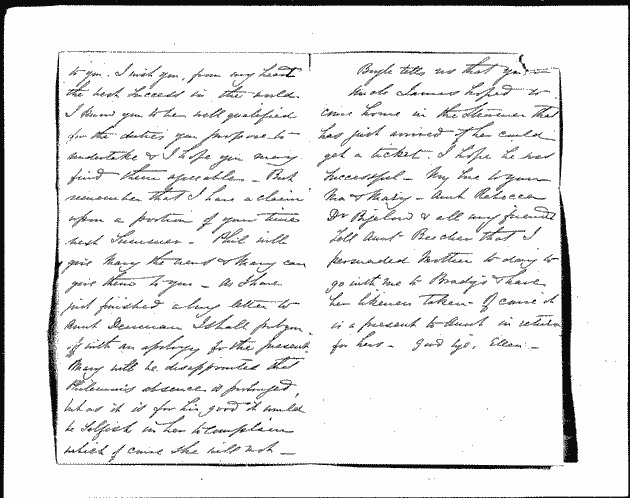 to you. I wish you, from my heart
the best success in the world.
I know you to be well qualified
for the duties you propose to
undertake & I hope you may
find them agreeable - But
remember that I have a claim
upon a portion of your time
next Summer - Phil will
give Mary the news & Mary can
give them to you - As I have
just finished a long letter to
Aunt I shall put you
off with an apology for the present.
Mary will be disappointed that
absence is prolonged,
but as it is for his good it would
be selfish in her to complain
which of course she will not -
tells us that you -
Uncle James hoped to
come home in the Steamer that
has just arrived if he could
get a ticket. I hope he was
successful - My love to your
Ma & Mary - Aunt Rebecca
Dr Bigelow & all my friends
Tell Aunt Beecher that I
persuaded Mother to day to
go with me to Brady's & have
her likeness taken - Of course it
is a present to Aunt in return
for hers - Good bye, Ellen -